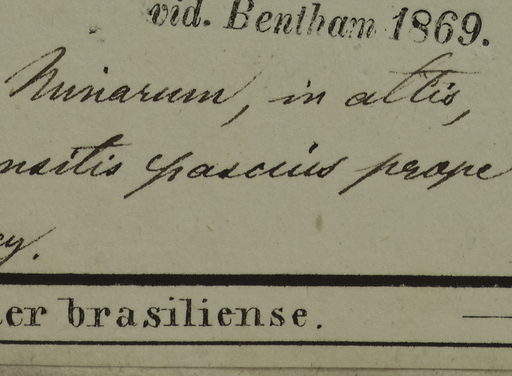 vid. Bentham 1869.
Minarum, in altis,
nsitis pascuis prope
cy.
ter brasiliense.